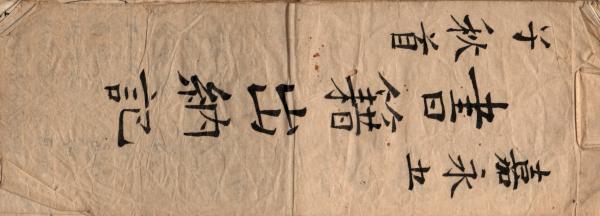 嘉永壬
書籍出納記
子秋首